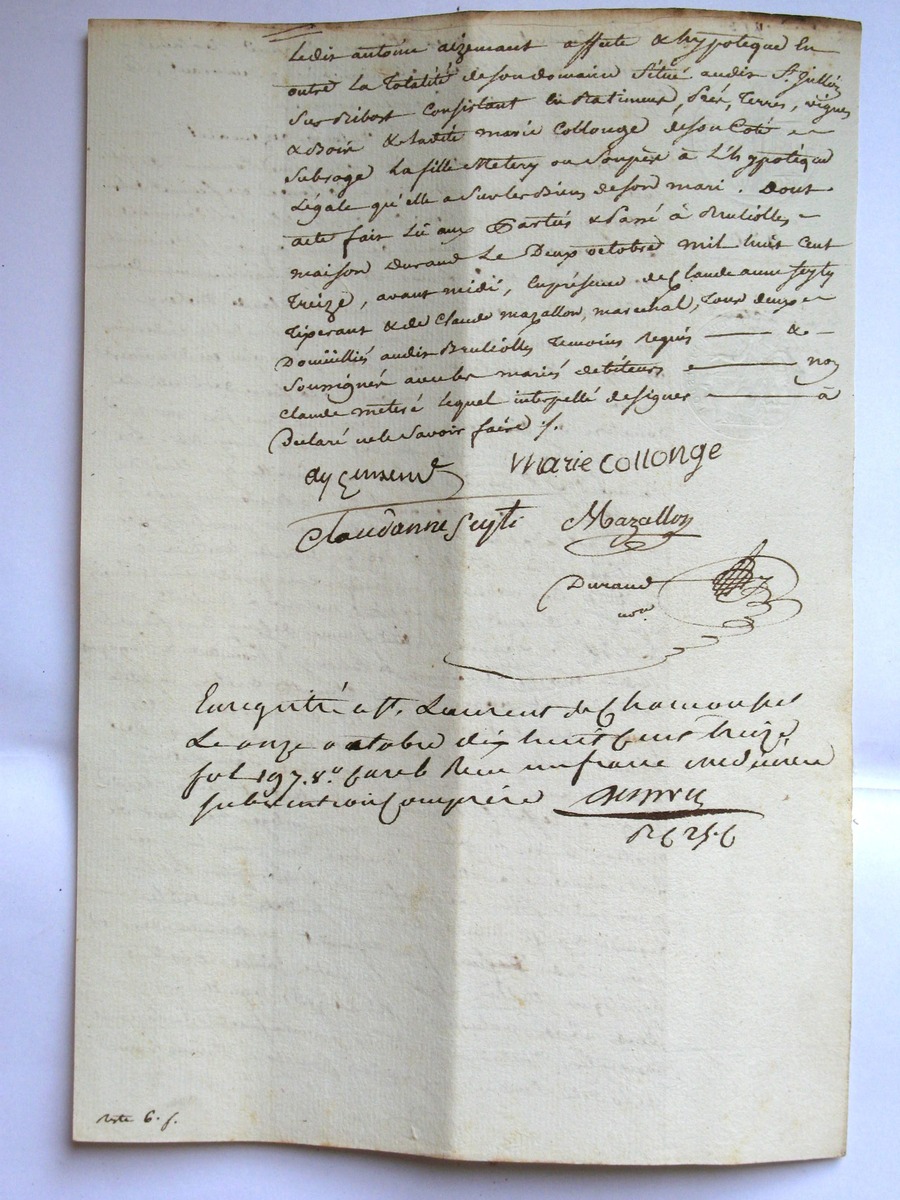 Ledit antoine aizemant affecte & hypoteque En
outre La Totalité de son domaine Situé audit St. Jullien
Sur Bibost Consistant En Batiment, Prés, Terres, vignes
& Bois & ladite marie Collonge de son Coté
Subroge La fille Metery ou Son père à L'hypotèque
Légale qu'elle a Sur les Biens de son mari. Dont
acte fait Lû aux Parties & Passé à Brullolles
maison Durand Le Deux octobre mil huit cent
Treize, avant midi, En présence de Claudeanne Seyty
Tixerant & de Claude mazallon, marechal, Tous deux
Domiciliés audit Brullolles Temoins requis &
Soussignés avec les mariés debiteurs non
Claude lequel interpellé de signer à
Declaré ne le Savoir faire /.
marie collonge
Claudanne Seyti Mazallon
Durand
nore
Enregistré a St. Laurent de Chamousset
Le onze octobre dix huit Cent treize
fol 197 Reçu un franc
subvention Comprise
reste 6. f.